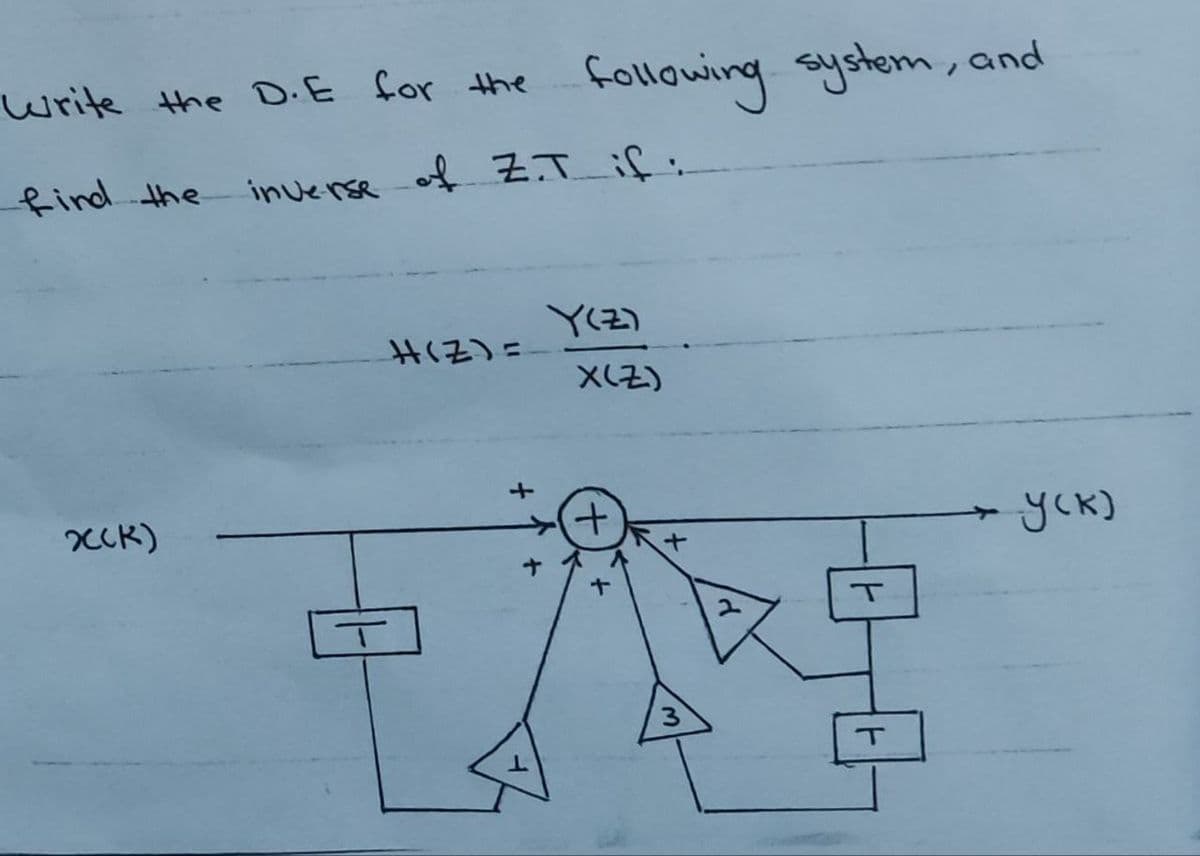 write the D.E for the following system, and
find the inverse of Z.T if:
H(Z) = Y(Z)
X(Z) .
x(K)
+
+
+
+
+
y(K)
T
T
2
3
T
1